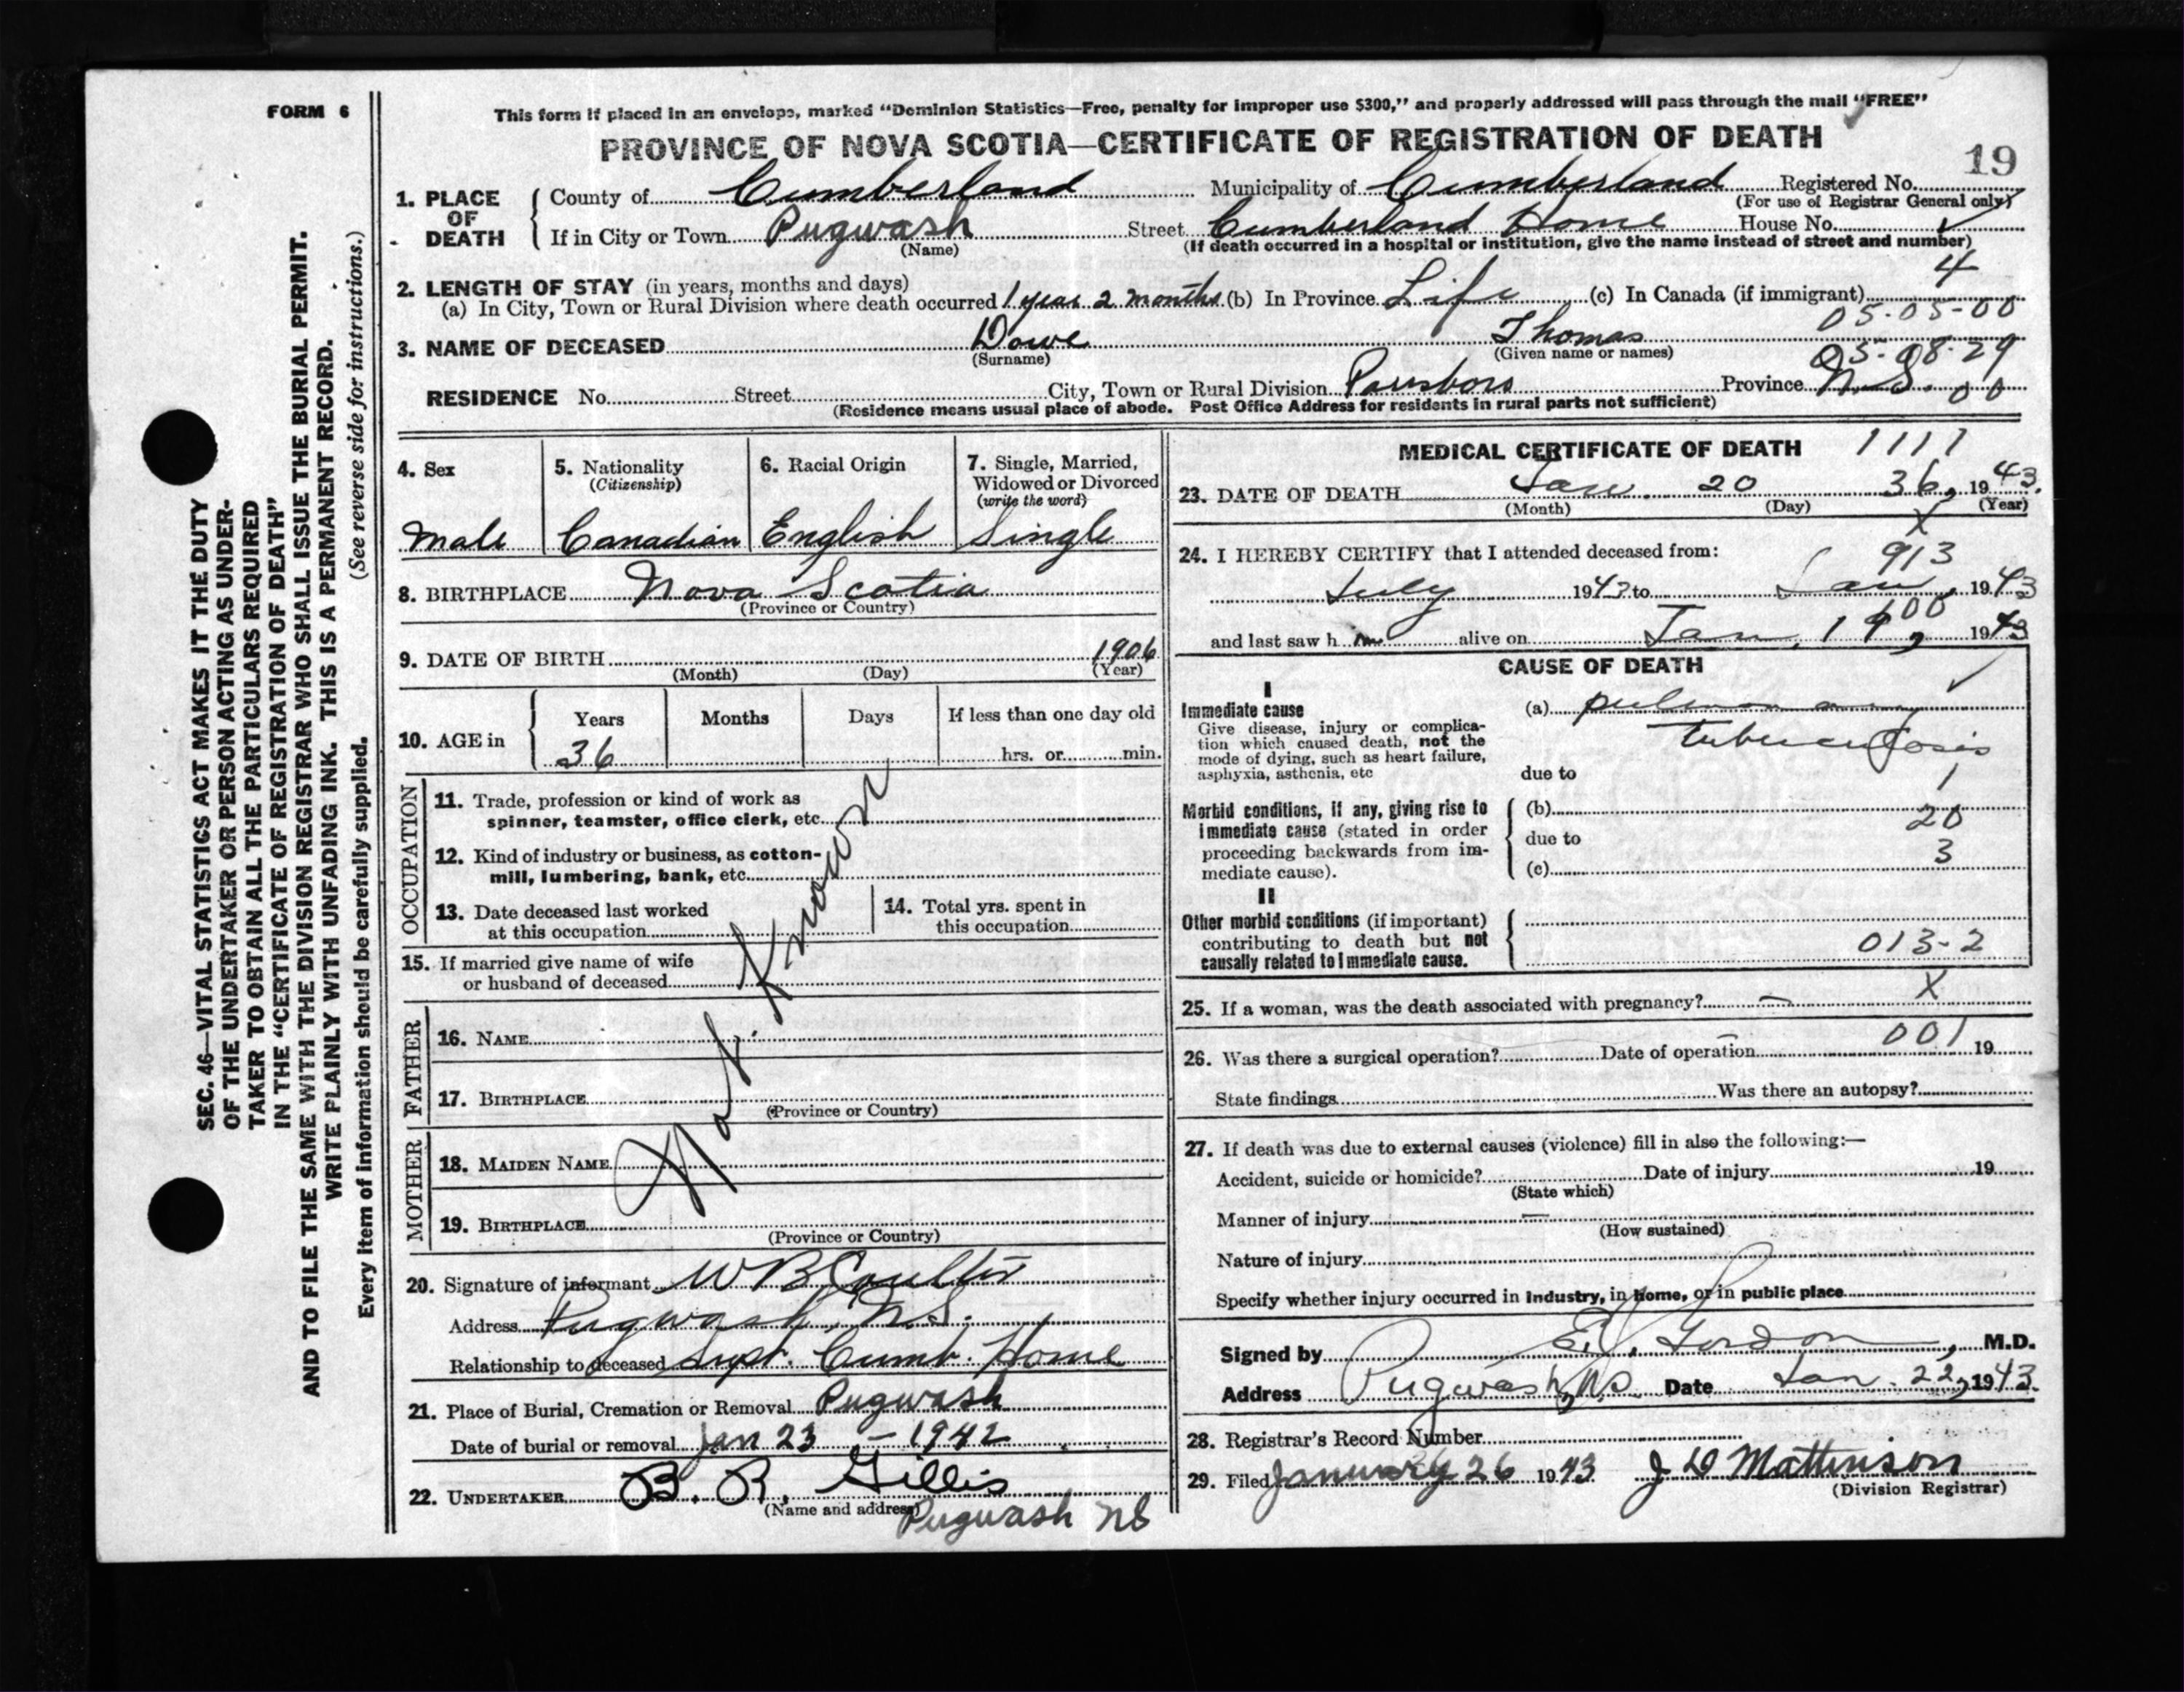 FORM 6
This form if placed in an envelope, marked "Dominion Statistics—Free, penalty for improper use $300," and properly addressed will pass through the mail "FREE"
PROVINCE OF NOVA SCOTIA—CERTIFICATE OF REGISTRATION OF DEATH
19
1. PLACE OF DEATH
County of Cumberland Municipality of Cumberland Registered No.
(For use of Registrar General only)
If in City or Town Pugwash Street Cumberland Home House No.
(Name) (If death occurred in a hospital or institution, give the name instead of street and number)
4
2. LENGTH OF STAY (in years, months and days)
(a) In City, Town or Rural Division where death occurred 1 year 2 months (b) In Province Life (c) In Canada (if immigrant)
05-05-00
3. NAME OF DECEASED Dowe Thomas
(Surname) (Given name or names)
05-08-29
RESIDENCE No. Street City, Town or Rural Division Parrsboro Province N.S. 00
(Residence means usual place of abode. Post Office Address for residents in rural parts not sufficient)
4. Sex
Male
5. Nationality
(Citizenship)
Canadian
6. Racial Origin
English
7. Single, Married,
Widowed or Divorced
(write the word)
Single
8. BIRTHPLACE Nova Scotia
(Province or Country)
9. DATE OF BIRTH 1906
(Month) (Day) (Year)
10. AGE in
Years Months Days If less than one day old
36 hrs. or min.
OCCUPATION
11. Trade, profession or kind of work as
spinner, teamster, office clerk, etc.
12. Kind of industry or business, as cotton-
mill, lumbering, bank, etc.
13. Date deceased last worked
at this occupation
14. Total yrs. spent in
this occupation
15. If married give name of wife
or husband of deceased
Not Known
FATHER
16. NAME
17. BIRTHPLACE
(Province or Country)
MOTHER
18. MAIDEN NAME
19. BIRTHPLACE
(Province or Country)
20. Signature of informant W B Coulter
Address Pugwash, N.S.
Relationship to deceased Supt. Cumb. Home
21. Place of Burial, Cremation or Removal Pugwash
Date of burial or removal Jan 23 - 1942
22. UNDERTAKER B. R. Gillis
(Name and address)
Pugwash NS
MEDICAL CERTIFICATE OF DEATH 1111
23. DATE OF DEATH Jan. 20 36, 1943.
(Month) (Day) (Year)
X
24. I HEREBY CERTIFY that I attended deceased from:
913
July 1943 to Jan, 1943
600
and last saw him alive on Jan. 19, 1943
CAUSE OF DEATH
I
Immediate cause
Give disease, injury or complica-
tion which caused death, not the
mode of dying, such as heart failure,
asphyxia, asthenia, etc
(a) pulmonary
tuberculosis
due to
1
Morbid conditions, if any, giving rise to
immediate cause (stated in order
proceeding backwards from im-
mediate cause).
(b)
20
due to
3
(c)
II
Other morbid conditions (if important)
contributing to death but not
causally related to immediate cause.
013-2
X
25. If a woman, was the death associated with pregnancy? —
001
26. Was there a surgical operation? Date of operation 19
State findings Was there an autopsy?
27. If death was due to external causes (violence) fill in also the following:—
Accident, suicide or homicide? Date of injury 19
(State which)
Manner of injury —
(How sustained)
Nature of injury
Specify whether injury occurred in industry, in home, or in public place
Signed by E. V. Gordon, M.D.
Address Pugwash, N.S. Date Jan. 22, 1943.
28. Registrar's Record Number
29. Filed January 26 1943 J D Mattinson
(Division Registrar)
SEC. 46—VITAL STATISTICS ACT MAKES IT THE DUTY
OF THE UNDERTAKER OR PERSON ACTING AS UNDER-
TAKER TO OBTAIN ALL THE PARTICULARS REQUIRED
IN THE "CERTIFICATE OF REGISTRATION OF DEATH"
AND TO FILE THE SAME WITH THE DIVISION REGISTRAR WHO SHALL ISSUE THE BURIAL PERMIT.
WRITE PLAINLY WITH UNFADING INK. THIS IS A PERMANENT RECORD.
Every item of information should be carefully supplied. (See reverse side for instructions.)